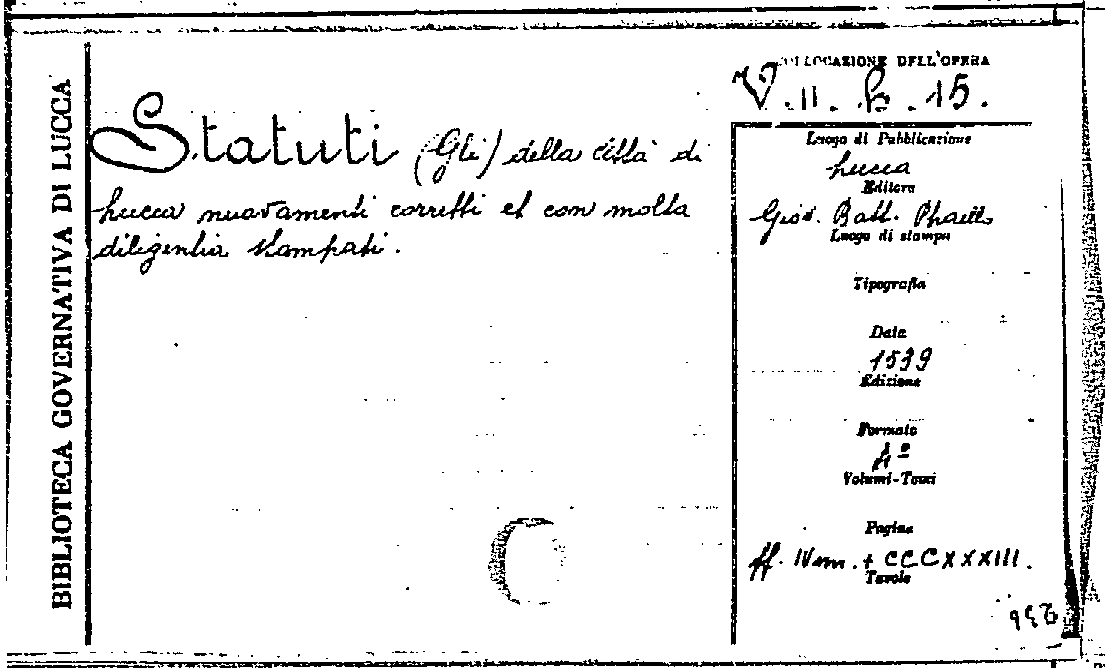 BIBLIOTECA GOVERNATIVA DI LUCCA
Statuti (Gli) della città di
Lucca nuovamenti corretti et con molta
diligentia stampati.
COLLOCAZIONE DELL'OPERA
V. II. b. 15.
Luogo di Pubblicazione
Lucca
Editore
Giov. Batt. Phaello
Luogo di stampa
Tipografia
Data
1539
Edizione
Formato
4º
Volumi-Tomi
Pagine
ff. IV nn. + CCCXXXIII.
Tavole